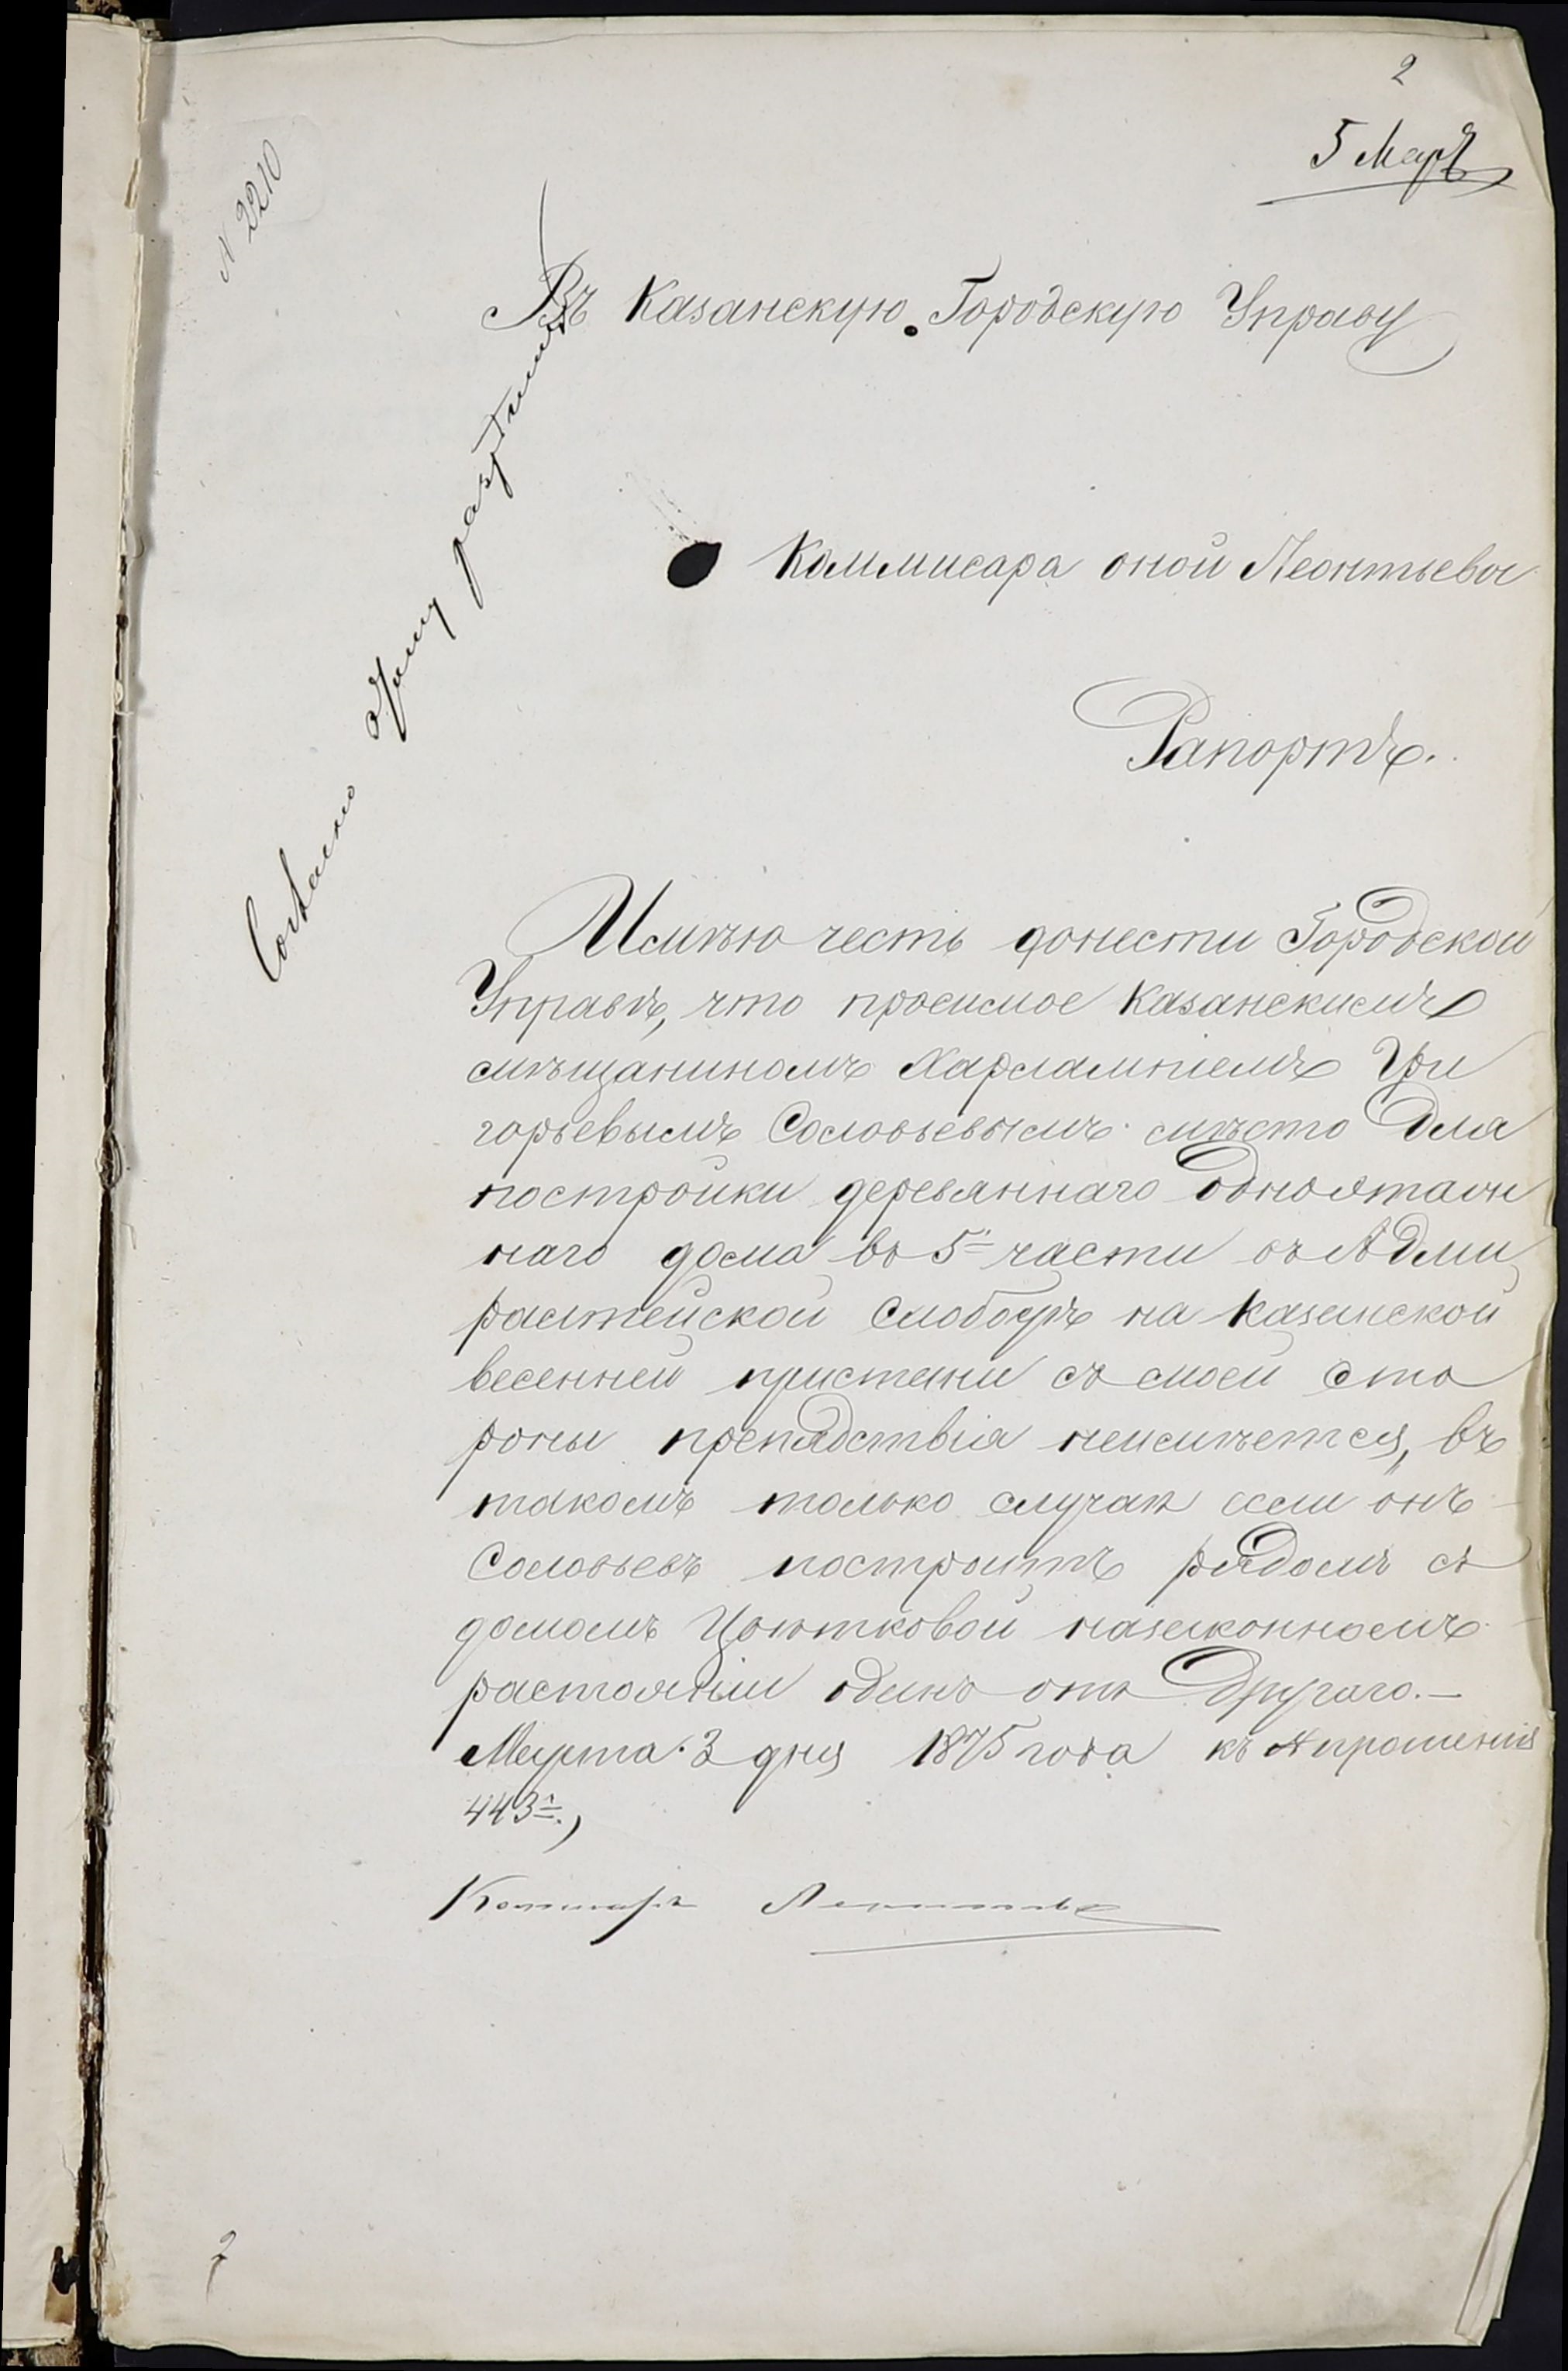 2
5 Мар
N 2210
Въ Казанскую Городскую Управу
Согласно этому разрѣшить
Коммисара оной Леонтьева
Рапортъ.
Имѣю честь донести Городской
Управѣ, что просимое Казанскимъ
мѣщаниномъ Харлампіемъ Гри
горьевымъ Соловьевымъ мѣсто для
постройки деревяннаго одноэтаж
наго дома въ 5й части въ Адми
ралтейской слободѣ на казанской
весенней пристани съ моей сто
роны препядствія неимѣется, въ
такомъ только случаѣ если онъ
Соловьевъ построитъ рядомъ съ
домомъ назаконномъ
растояніи одинъ отъ другаго.—
Марта 3 дня 1875 года къ № прошенія
443
Коммисаръ Леонтьевъ